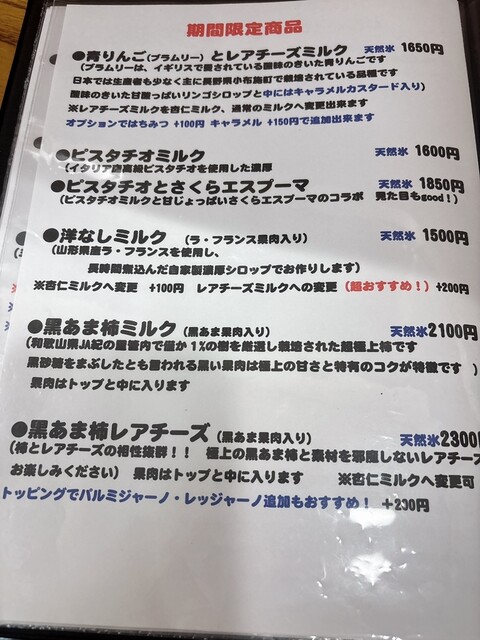 期間限定商品
●青りんご(ブラムリー)とレアチーズミルク 天然氷 1650円
(ブラムリーは、イギリスで愛されている酸味のきいた青りんごです
日本では生産者も少なく主に長野県小布施町で栽培されている品種です
酸味のきいた甘酸っぱいリンゴシロップと中にはキャラメルカスタード入り)
※レアチーズミルクを杏仁ミルク、通常のミルクへ変更出来ます
オプションではちみつ +100円 キャラメル +150円で追加出来ます
●ピスタチオミルク 天然氷 1600円
(イタリア産高級ピスタチオを使用した濃厚
●ピスタチオとさくらエスプーマ 天然氷 1850円
(ピスタチオミルクと甘じょっぱいさくらエスプーマのコラボ 見た目もgood!)
●洋なしミルク (ラ・フランス果肉入り) 天然氷 1500円
(山形県産ラ・フランスを使用し、
長時間煮込んだ自家製濃厚シロップでお作りします)
※杏仁ミルクへ変更 +100円 レアチーズミルクへの変更(超おすすめ!)+200円
●黒あま柿ミルク(黒あま果肉入り) 天然氷2100円
(和歌山県JA紀の里管内で僅か1%の樹を厳選し栽培された超極上柿です
黒砂糖をまぶしたとも言われる黒い果肉は極上の甘さと特有のコクが特徴です )
果肉はトップと中に入ります
●黒あま柿レアチーズ(黒あま果肉入り) 天然氷2300円
(柿とレアチーズの相性抜群!! 極上の黒あま柿と素材を邪魔しないレアチーズ
お楽しみください) 果肉はトップと中に入ります ※杏仁ミルクへ変更可
トッピングでパルミジャーノ・レッジャーノ追加もおすすめ! +200円